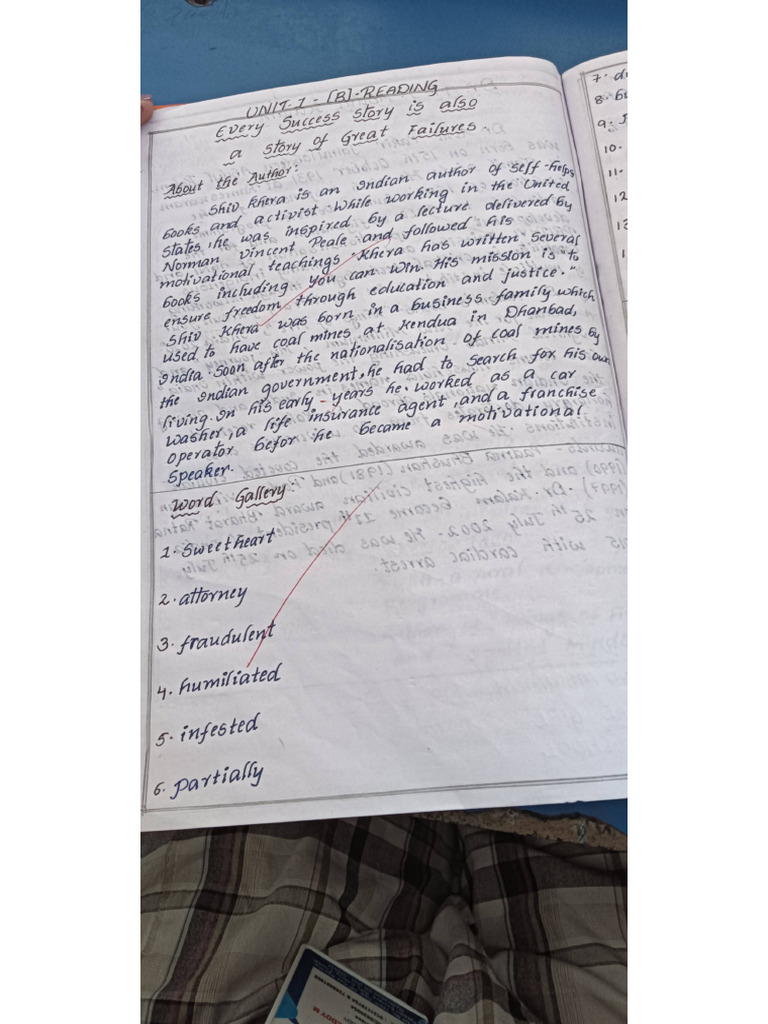 UNIT-1-[B]-READING
Every Success story is also
a story of Great Failures
About the Author:
Shiv Khera is an Indian author of self-helps
books and activist. While working in the United
States, he was inspired by a lecture delivered by
Norman Vincent Peale and followed his
motivational teachings. Khera has written several
books including you can win. His mission is "to
ensure freedom through education and justice."
Shiv Khera was born in a business family which
used to have coal mines at Kendua in Dhanbad,
India. Soon after the nationalisation of coal mines by
the Indian government, he had to search for his own
living. In his early-years he worked as a car
washer, a life insurance agent, and a franchise
operator befor he became a motivational
speaker.
Word Gallery:
1. Sweetheart
2. attorney
3. fraudulent
4. humiliated
5. infested
6. partially
7.
8.
9.
10.
11.
12